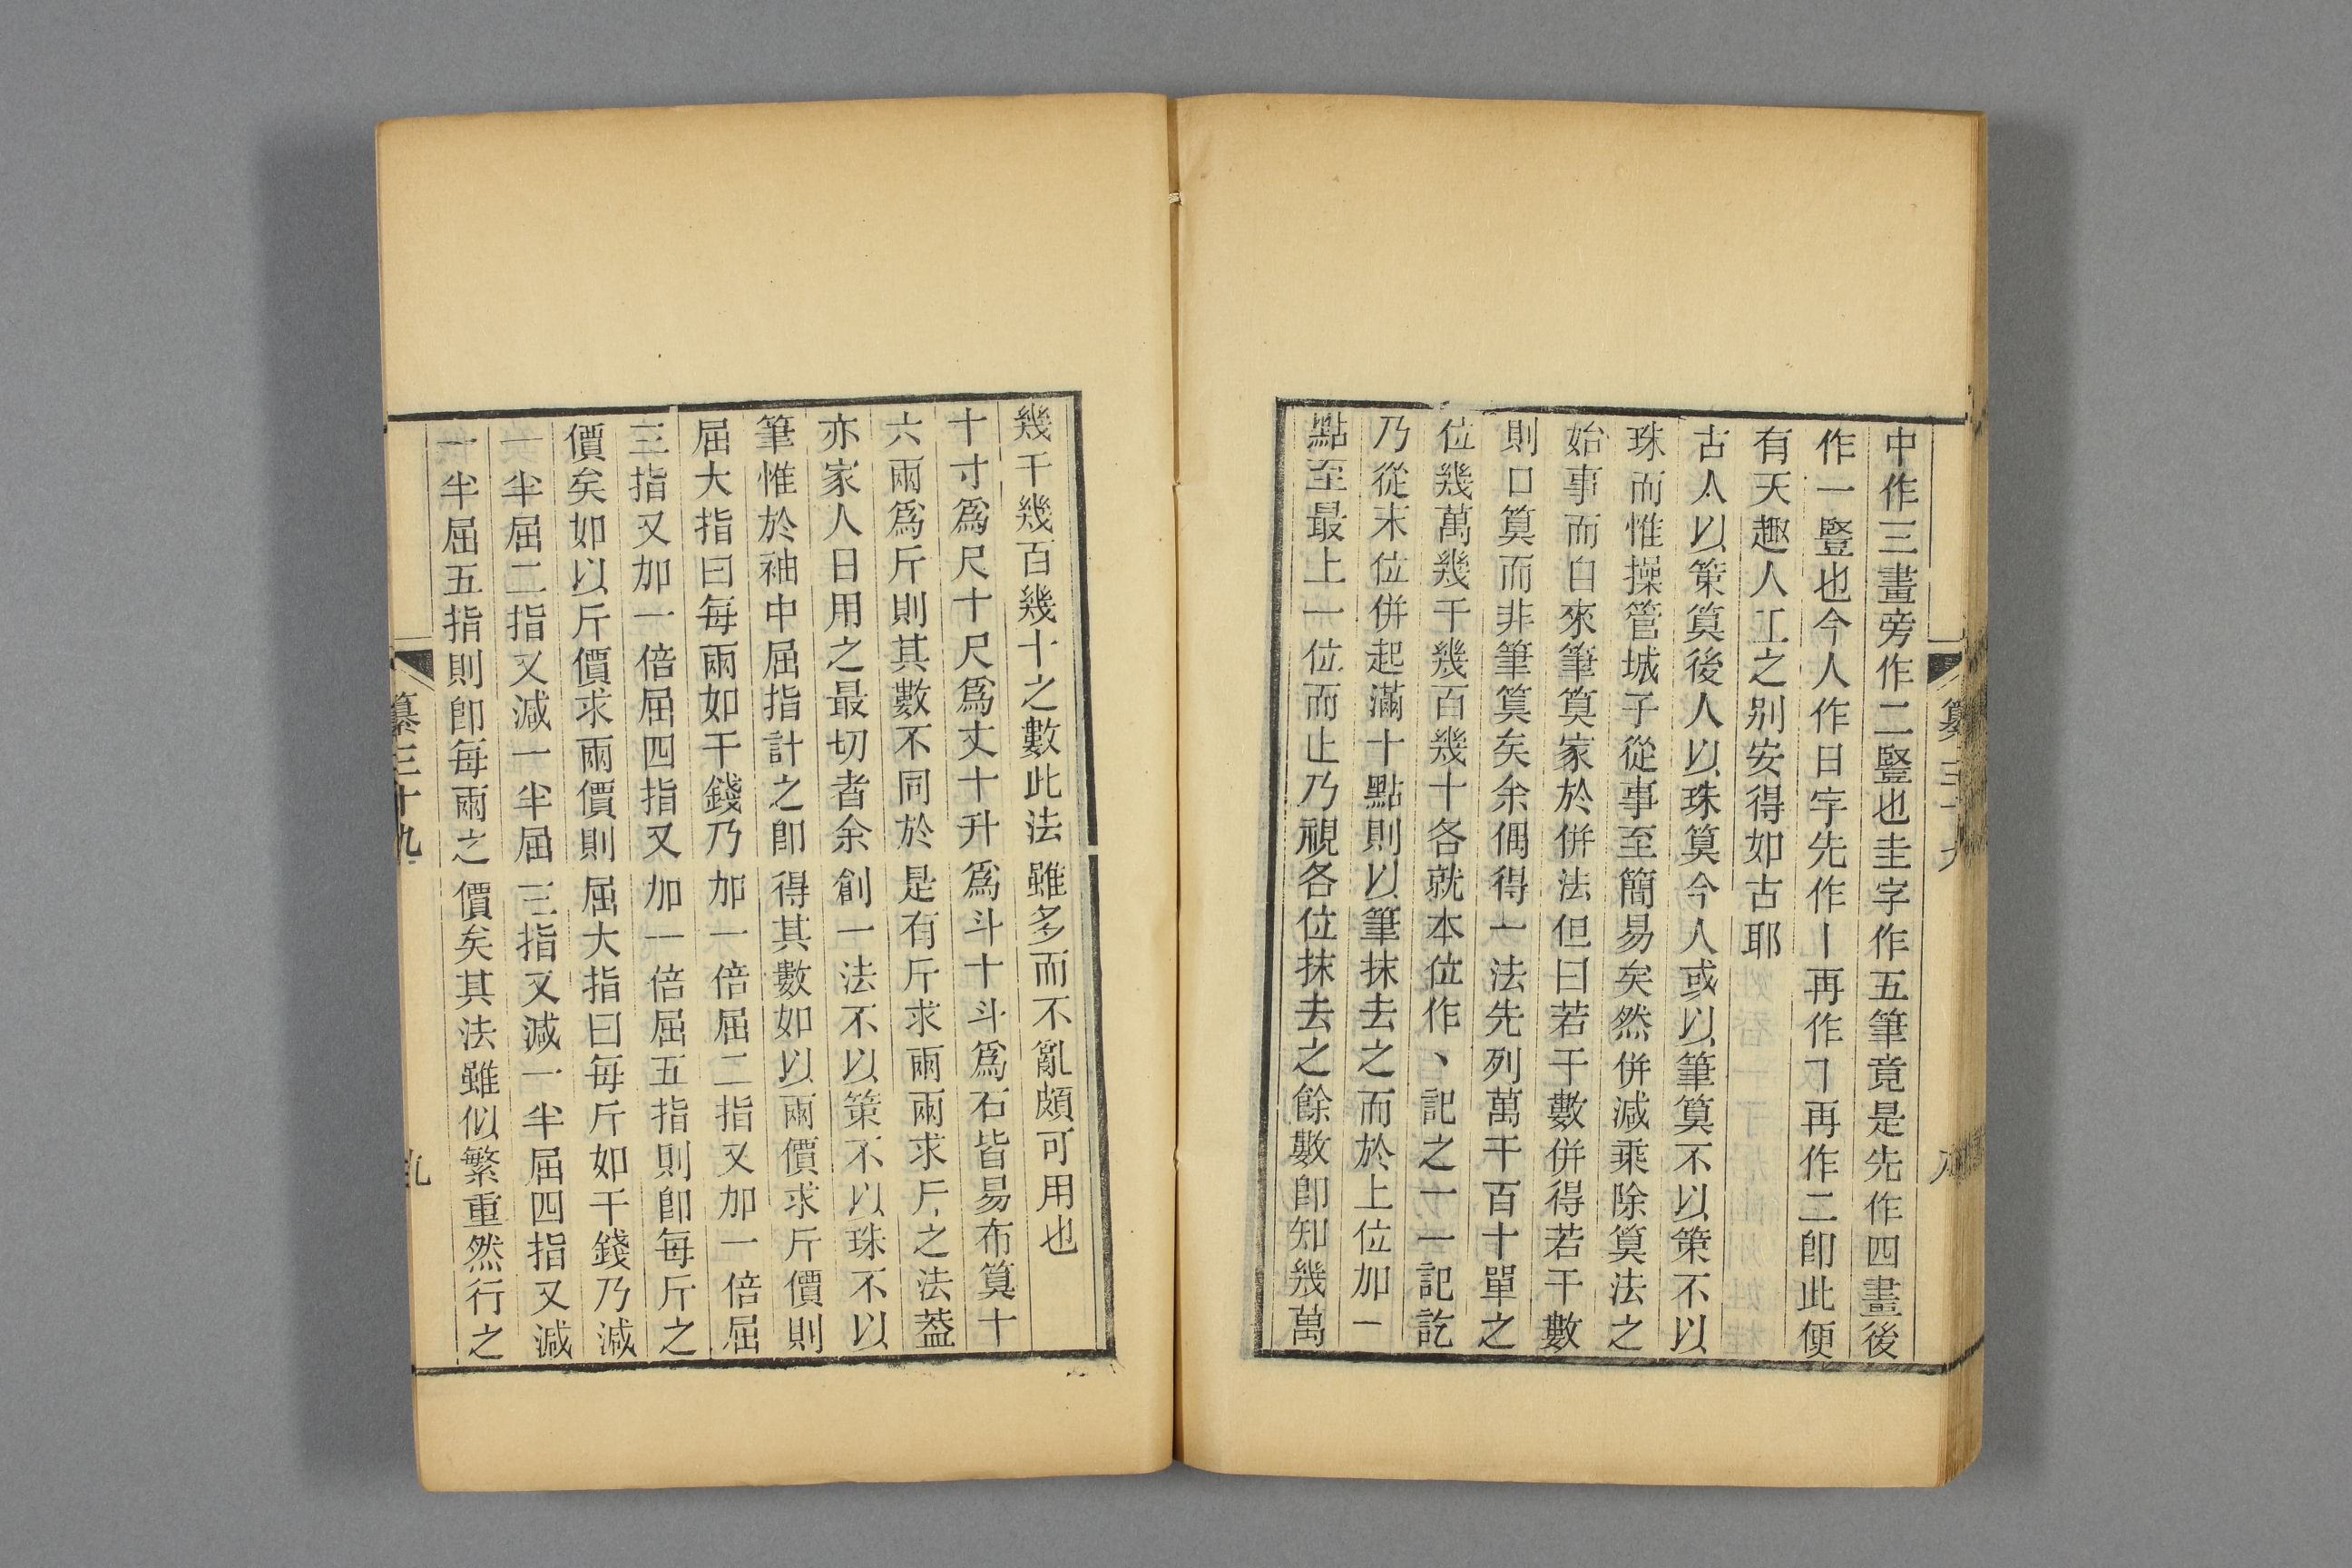 中作三畫旁作二豎也圭字作五筆竟是先作四畫後
作一豎也今人作日字先作丨再作㇕再作二卽此便
有天趣人工之別安得如古耶
古人以策算後人以珠算今人或以筆算不以策不以
珠而惟操管城子從事至簡易矣然併減乘除算法之
始事而自來筆算家於併法但曰若干數併得若干數
則口算而非筆算矣余偶得一法先列萬千百十單之
位幾萬幾千幾百幾十各就本位作丶記之一一記訖
乃從末位併起滿十點則以筆抹去之而於上位加一
點至最上一位而止乃視各位抹去之餘數卽知幾萬
幾千幾百幾十之數此法雖多而不亂頗可用也
十寸爲尺十尺爲丈十升爲斗十斗爲石皆易布算十
六兩爲斤則其數不同於是有斤求兩兩求斤之法葢
亦家人日用之最切者余創一法不以策不以珠不以
筆惟於袖中屈指計之卽得其數如以兩價求斤價則
屈大指曰每兩如干錢乃加一倍屈二指又加一倍屈
三指又加一倍屈四指又加一倍屈五指則卽每斤之
價矣如以斤價求兩價則屈大指曰每斤如干錢乃減
一半屈二指又減一半屈三指又減一半屈四指又減
一半屈五指則卽每兩之價矣其法雖似繁重然行之
纂三十九
九